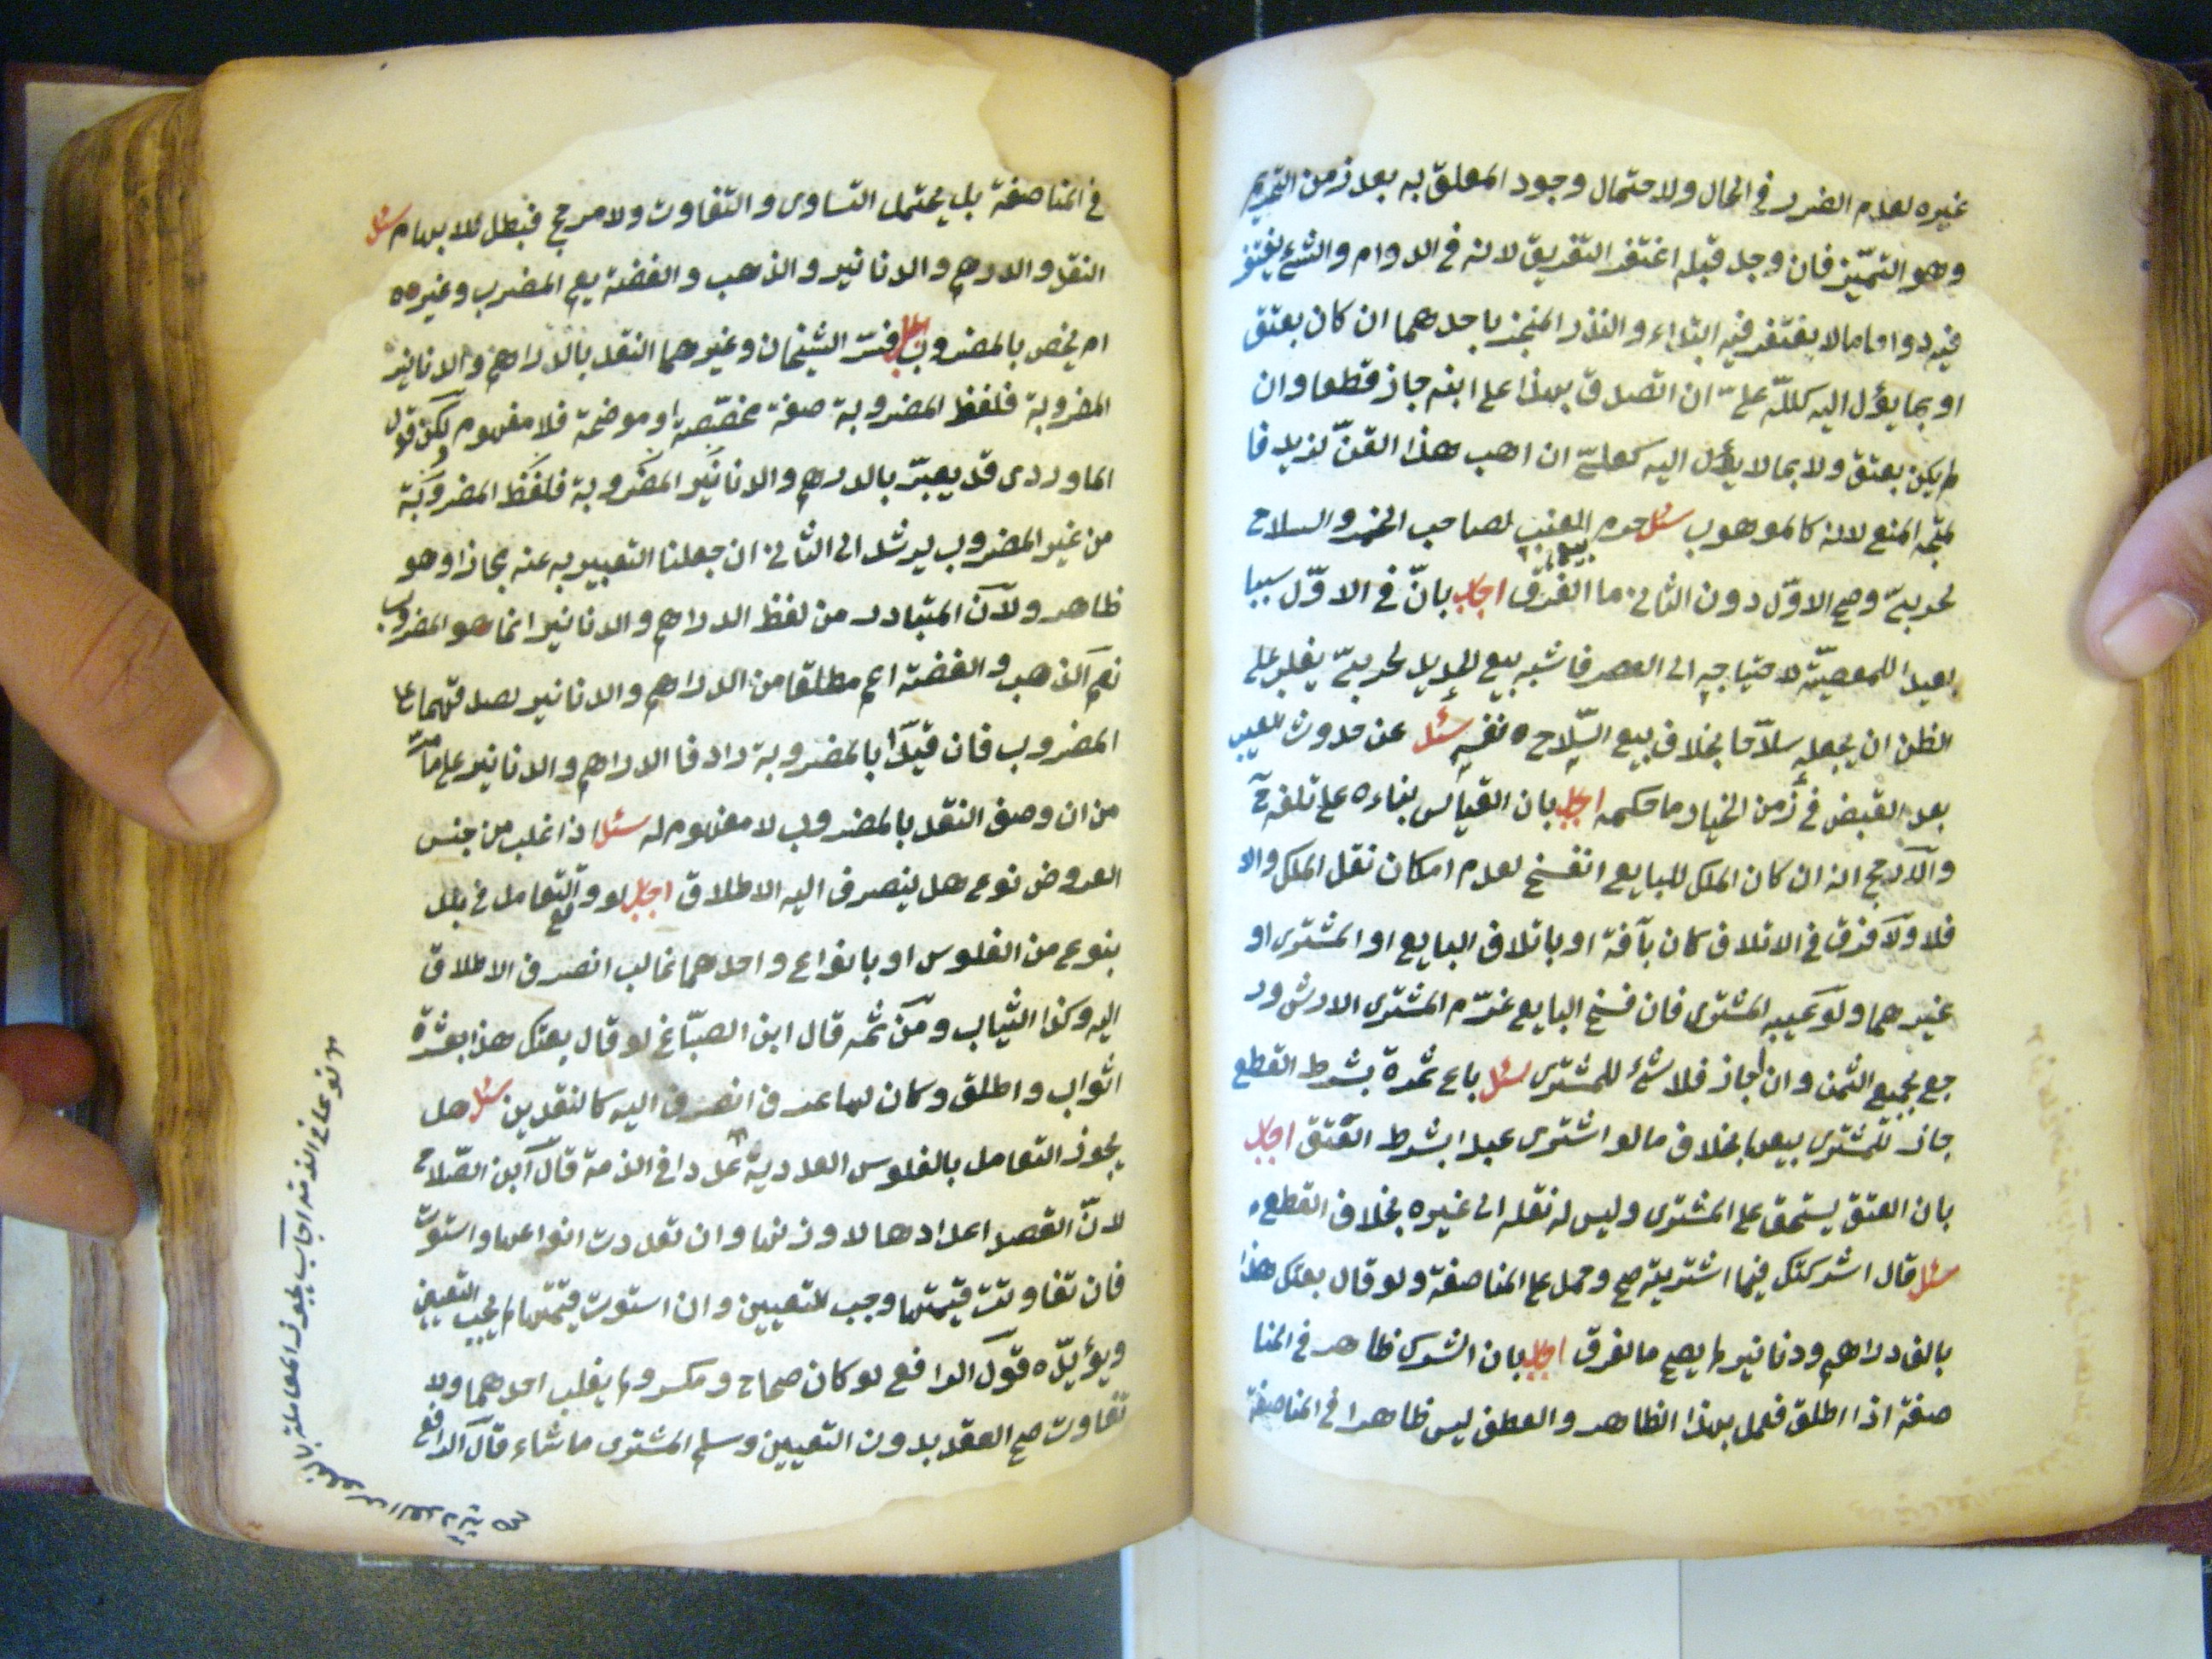 غيره لعدم الضرر في الحال ولاحتمال وجود المعلق به بعد زمن التحريم
وهو التميّز فان وجد قبله اغتفر التفريق لانه في الدوام والشئ يغتفر
فيه دواما ما لا يغتفر فيه ابتداء والنذر المنجز باحدهما ان كان بعتق
او بما يؤل اليه كللّه علىّ ان اتصدق بهذا على ابنه جاز قطعا وان
لم يكن بعتق ولا بما لا يؤل اليه كعلىّ ان اهب هذا القنّ لزيد فا
لمتجه المنع لانه كالموهوب سئل حرم العنب لصاحب الخمر والسلاح
لحربىّ وصح الاوّل دون الثانى ما الفرق اجاب بانّ في الاوّل سببا
بعيدا للمعصيّة لاحتياجه الى العصر فاشبه بيع الحديد لحربىّ يغلب على
الظن ان يجعله سلاحا بخلاف بيع السّلاح نفسه سئل عن حدوث العيب
بعد القبض في زمن الخيار ما حكمه اجاب بان القياس بناءه على تلفه ح
والارجح انه ان كان الملك للبايع انفسخ لعدم امكان نقل الملك والا
فلا ولا فرق في الاتلاف كان بآفة او باتلاف البايع او المشترى او
غيرهما ولو عيبه المشترى فان فسخ البايع غرّم المشترى الارش ور
جع بجميع الثمن وان اجاز فلا شئ للمشترى سئل باع ثمرة بشرط القطع
جاز للمشترى بيعها بخلاف ما لو اشترى عبدا بشرط العتق اجاب
بان العتق يستحق على المشترى وليس له نقله الى غيره بخلاف القطع
سئل قال اشركتك فيما اشتريته صح وحمل على المناصفة ولو قال بعتك هذا
بالف دراهم ودنانير لم يصح ما الفرق اجاب بان الشرك ظاهر في المنا
صفة اذا اطلق فعمل بهذا الظاهر والعطف ليس ظاهرا في المناصفة
في المناصفة بل يحتمل التساوى والتفاوت ولا مرجح فبطل للابهام سئل
النقد والدرهم والدنانير والذهب والفضة يعم المضرب وغيره
ام يخص بالمضروب اجاب فسّر الشيخان وغيرهما النقد بالدراهم والدنانير
المضروبة فلفظ المضروبة صفة مخصّصة او موضحة فلا مفهوم لكن قول
الماوردى قد يعبّر بالدرهم والدنانير المضروبة فلفظ المضروبة
من غير المضروب يرشد الى الثانى ان جعلنا التعبير به عنه مجازا وهو
ظاهر ولان المتبادر من لفظ الدراهم والدنانير انما هو المضروب
نعم الذهب والفضة اعم مطلقا من الدراهم والدنانير لصدقهما على
المضروب فان قيدا بالمضروبة رادفا الدراهم والدنانير على ما مرّ
من ان وصف النقد بالمضروب لا مفهوم له سئل اذا غلب من جنس
العروض نوع هل ينصرف اليه الاطلاق اجاب لو وقع التعامل في بلد
بنوع من الفلوس او بانواع واحدهما غالب انصرف الاطلاق
اليه وكذا الثياب ومن ثمه قال ابن الصبّاغ لو قال بعتك هذا بعشرة
اثواب واطلق وكان لها عرف انصرف اليه كالنقدين سئل هل
يجوز التعامل بالفلوس العددية عددا في الذمة قال ابن الصّلاح
لانّ القصد اعدادها لا وزنها وان تعددت انواعها واستوت
فان تفاوتت قيمتها وجب التعيين وان استوت قيمتها لم يجب التعيين
ويؤيّده قول الرافع لو كان صحاح ومكسر ولم يغلب احدهما ولا
تفاوت صح العقد بدون التعيين وسلم المشترى ما شاء قال الرافع
نوعا في الذمة اجاب يجوز المعاملة بالفلوس العددية